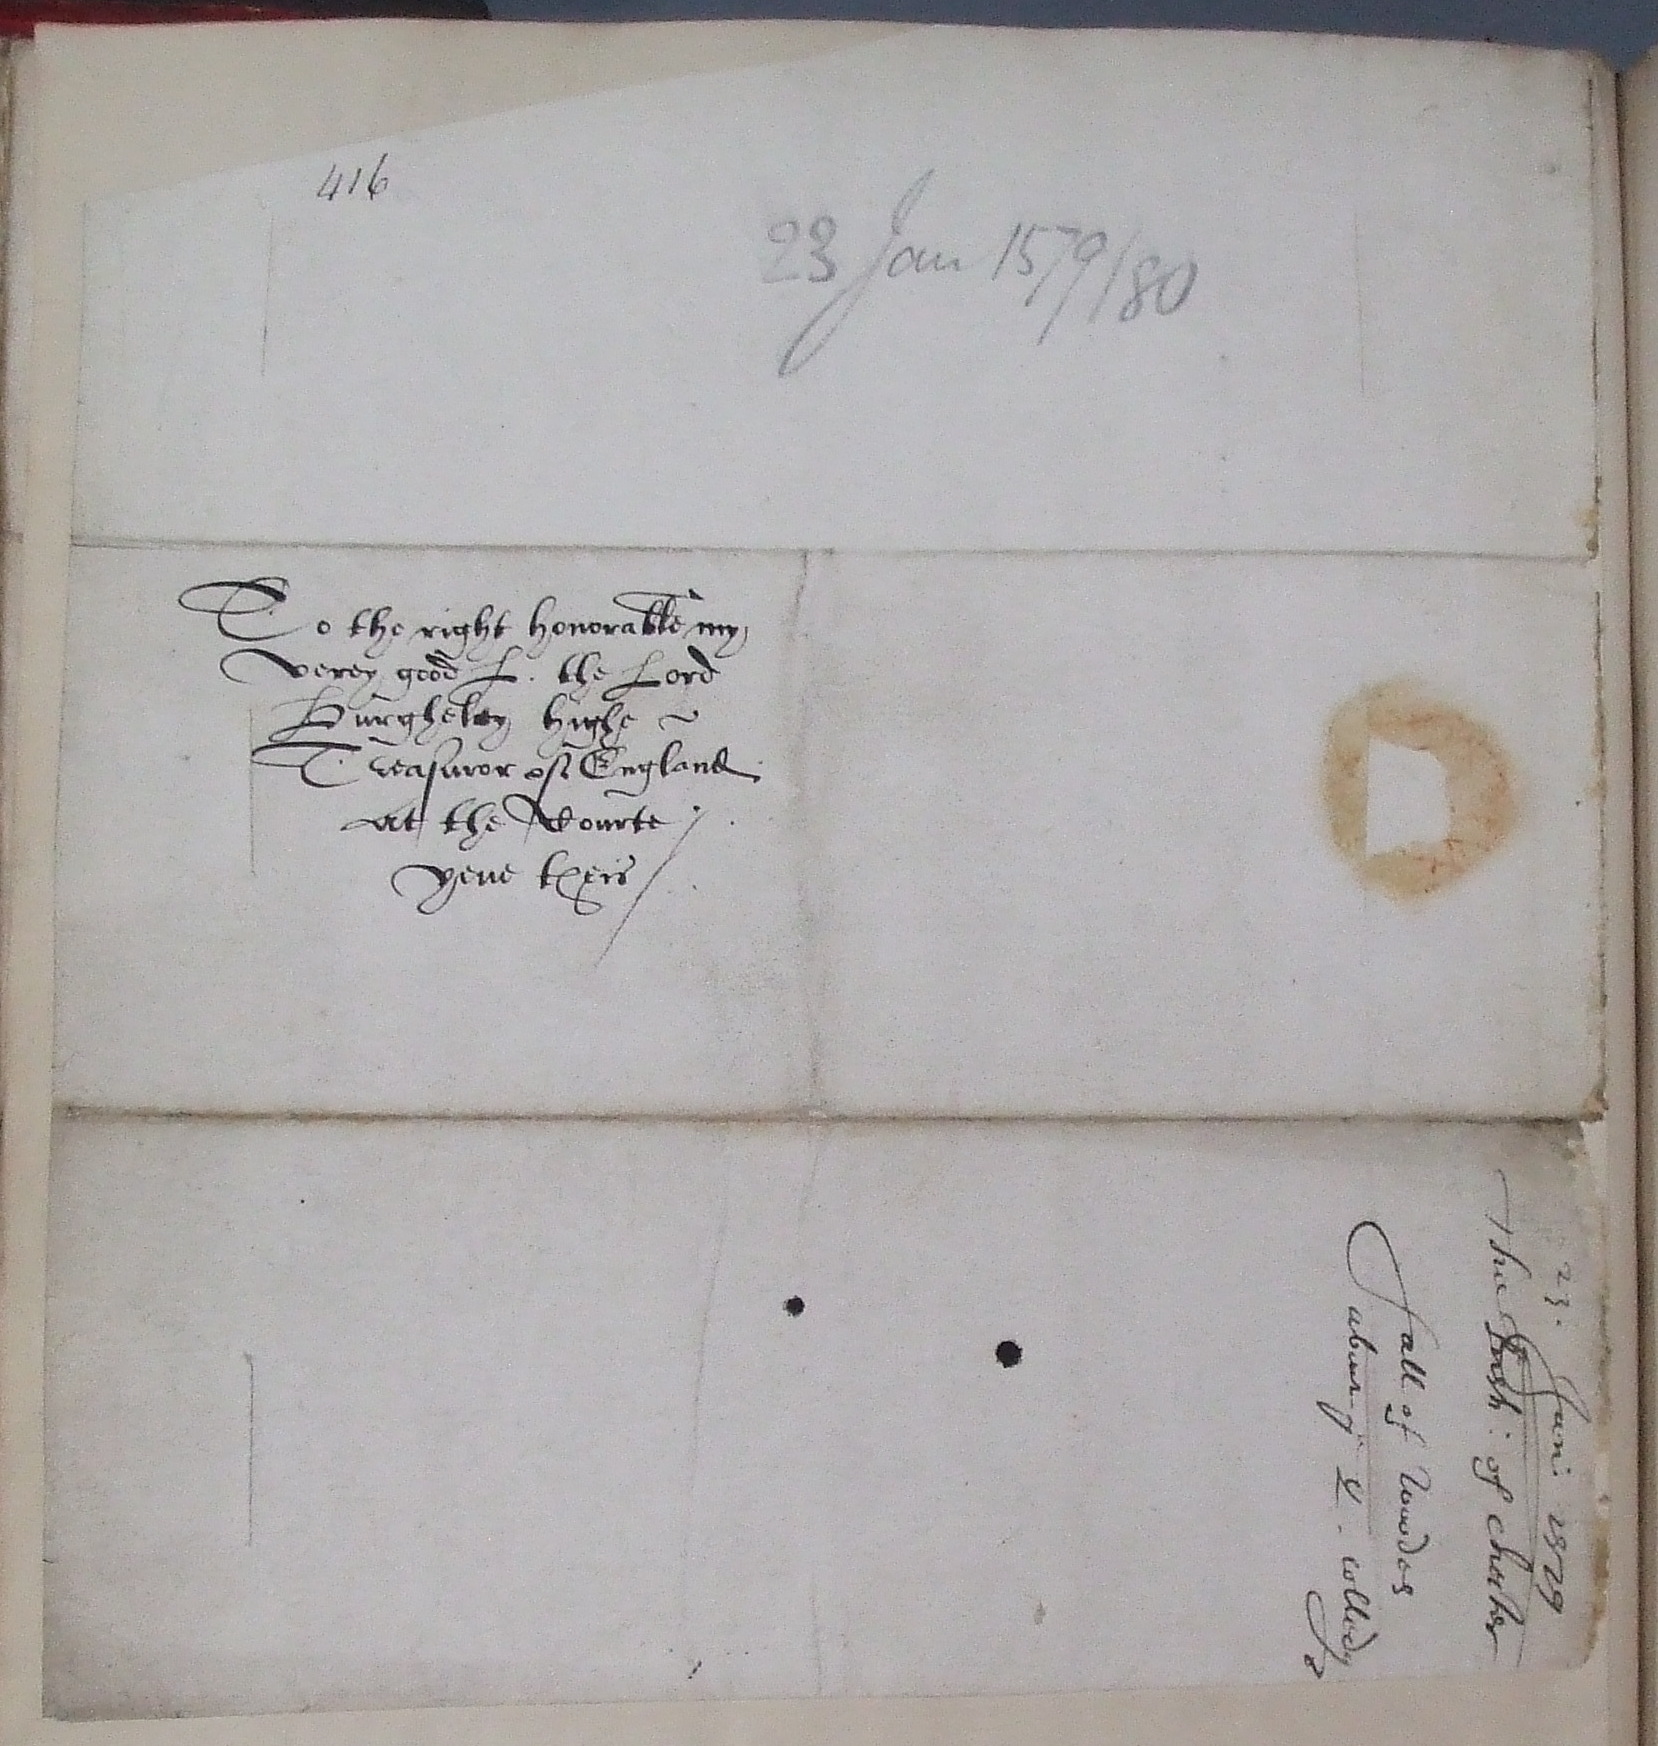 416
23 Jan 1579/80
To the right honorable my
verey good L. the Lord
Burgheley highe
Treasuror of England
At the Courte
yeue theis
23. Janu: 1579
The Bish: of Chester
Fall of woodes